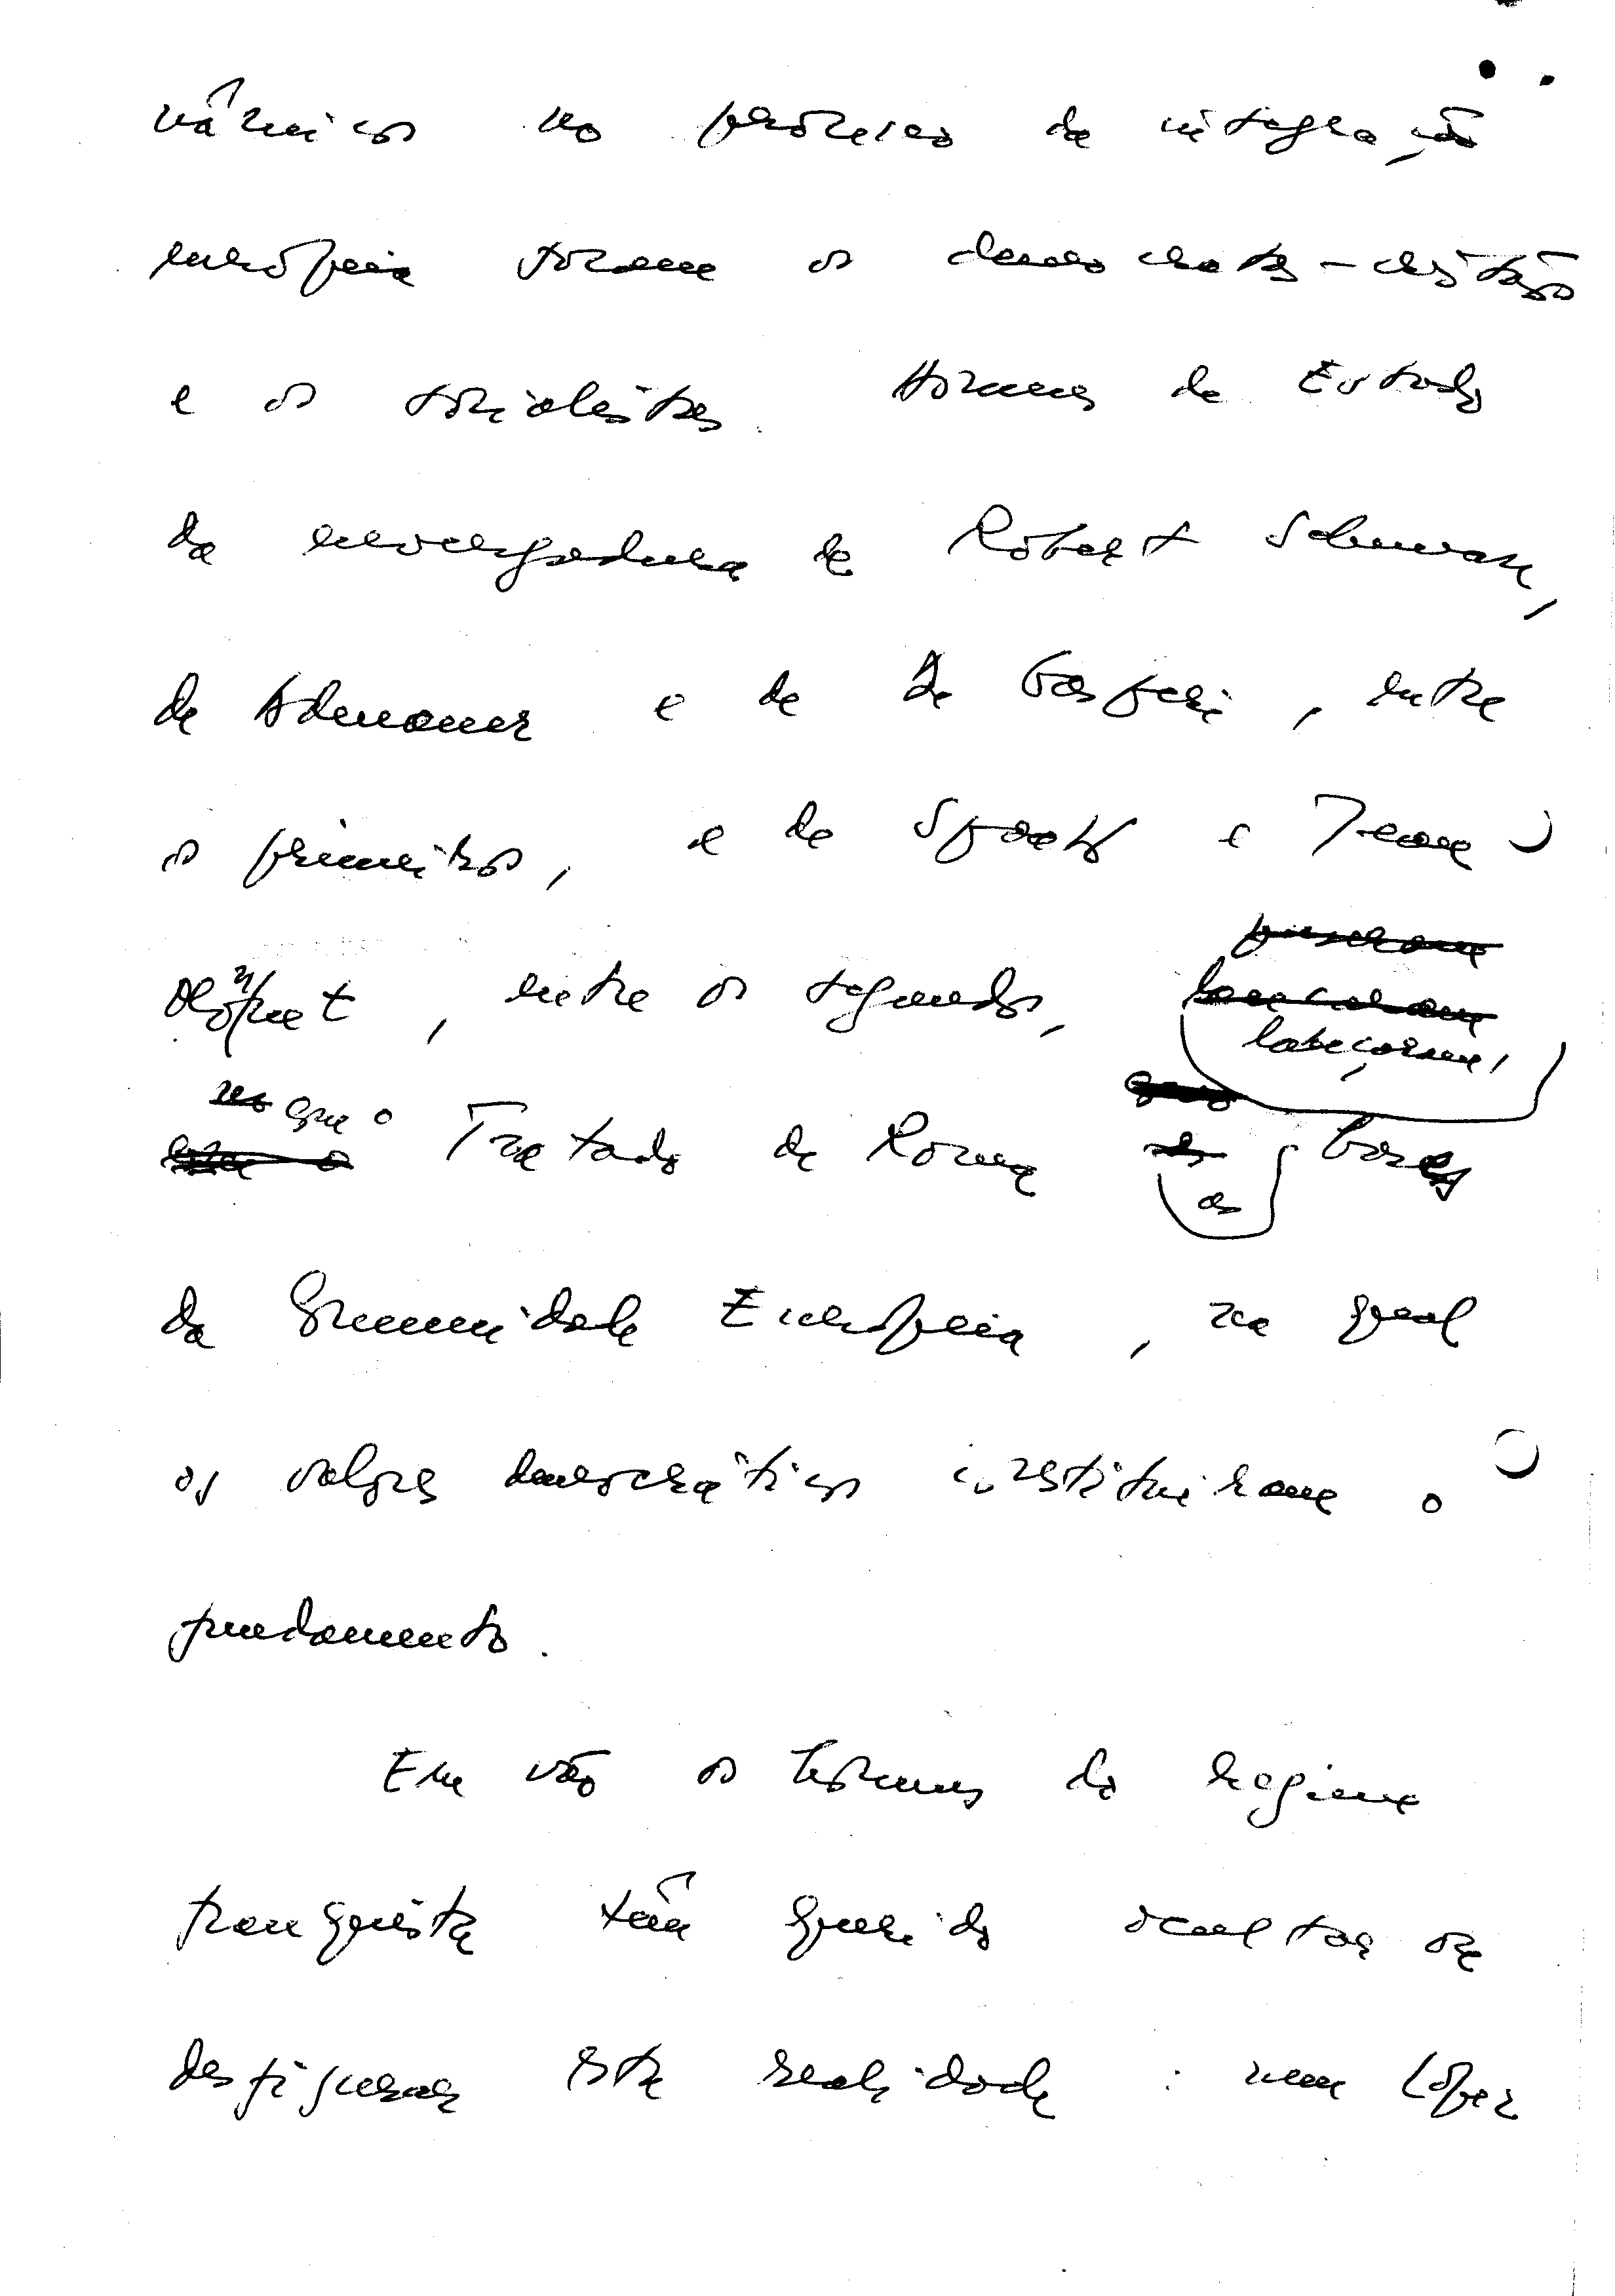 nâmicos no processo de integração
europeia foram os democratas-cristãos
e os socialistas. Homens de Estado
da envergadura de Robert Schuman,
de Adenauer e de De Gasperi, entre
os primeiros, e de Spaak e Jean
Monnet, entre os segundos,
lançaram
lançaram,
que o Tratado de Roma as bases
da Comunidade Europeia, na qual
os valores democráticos constituíram o
fundamento.
Em vão os homens do regime
franquista têm querido ocultar ou
desfigurar esta realidade: nem López